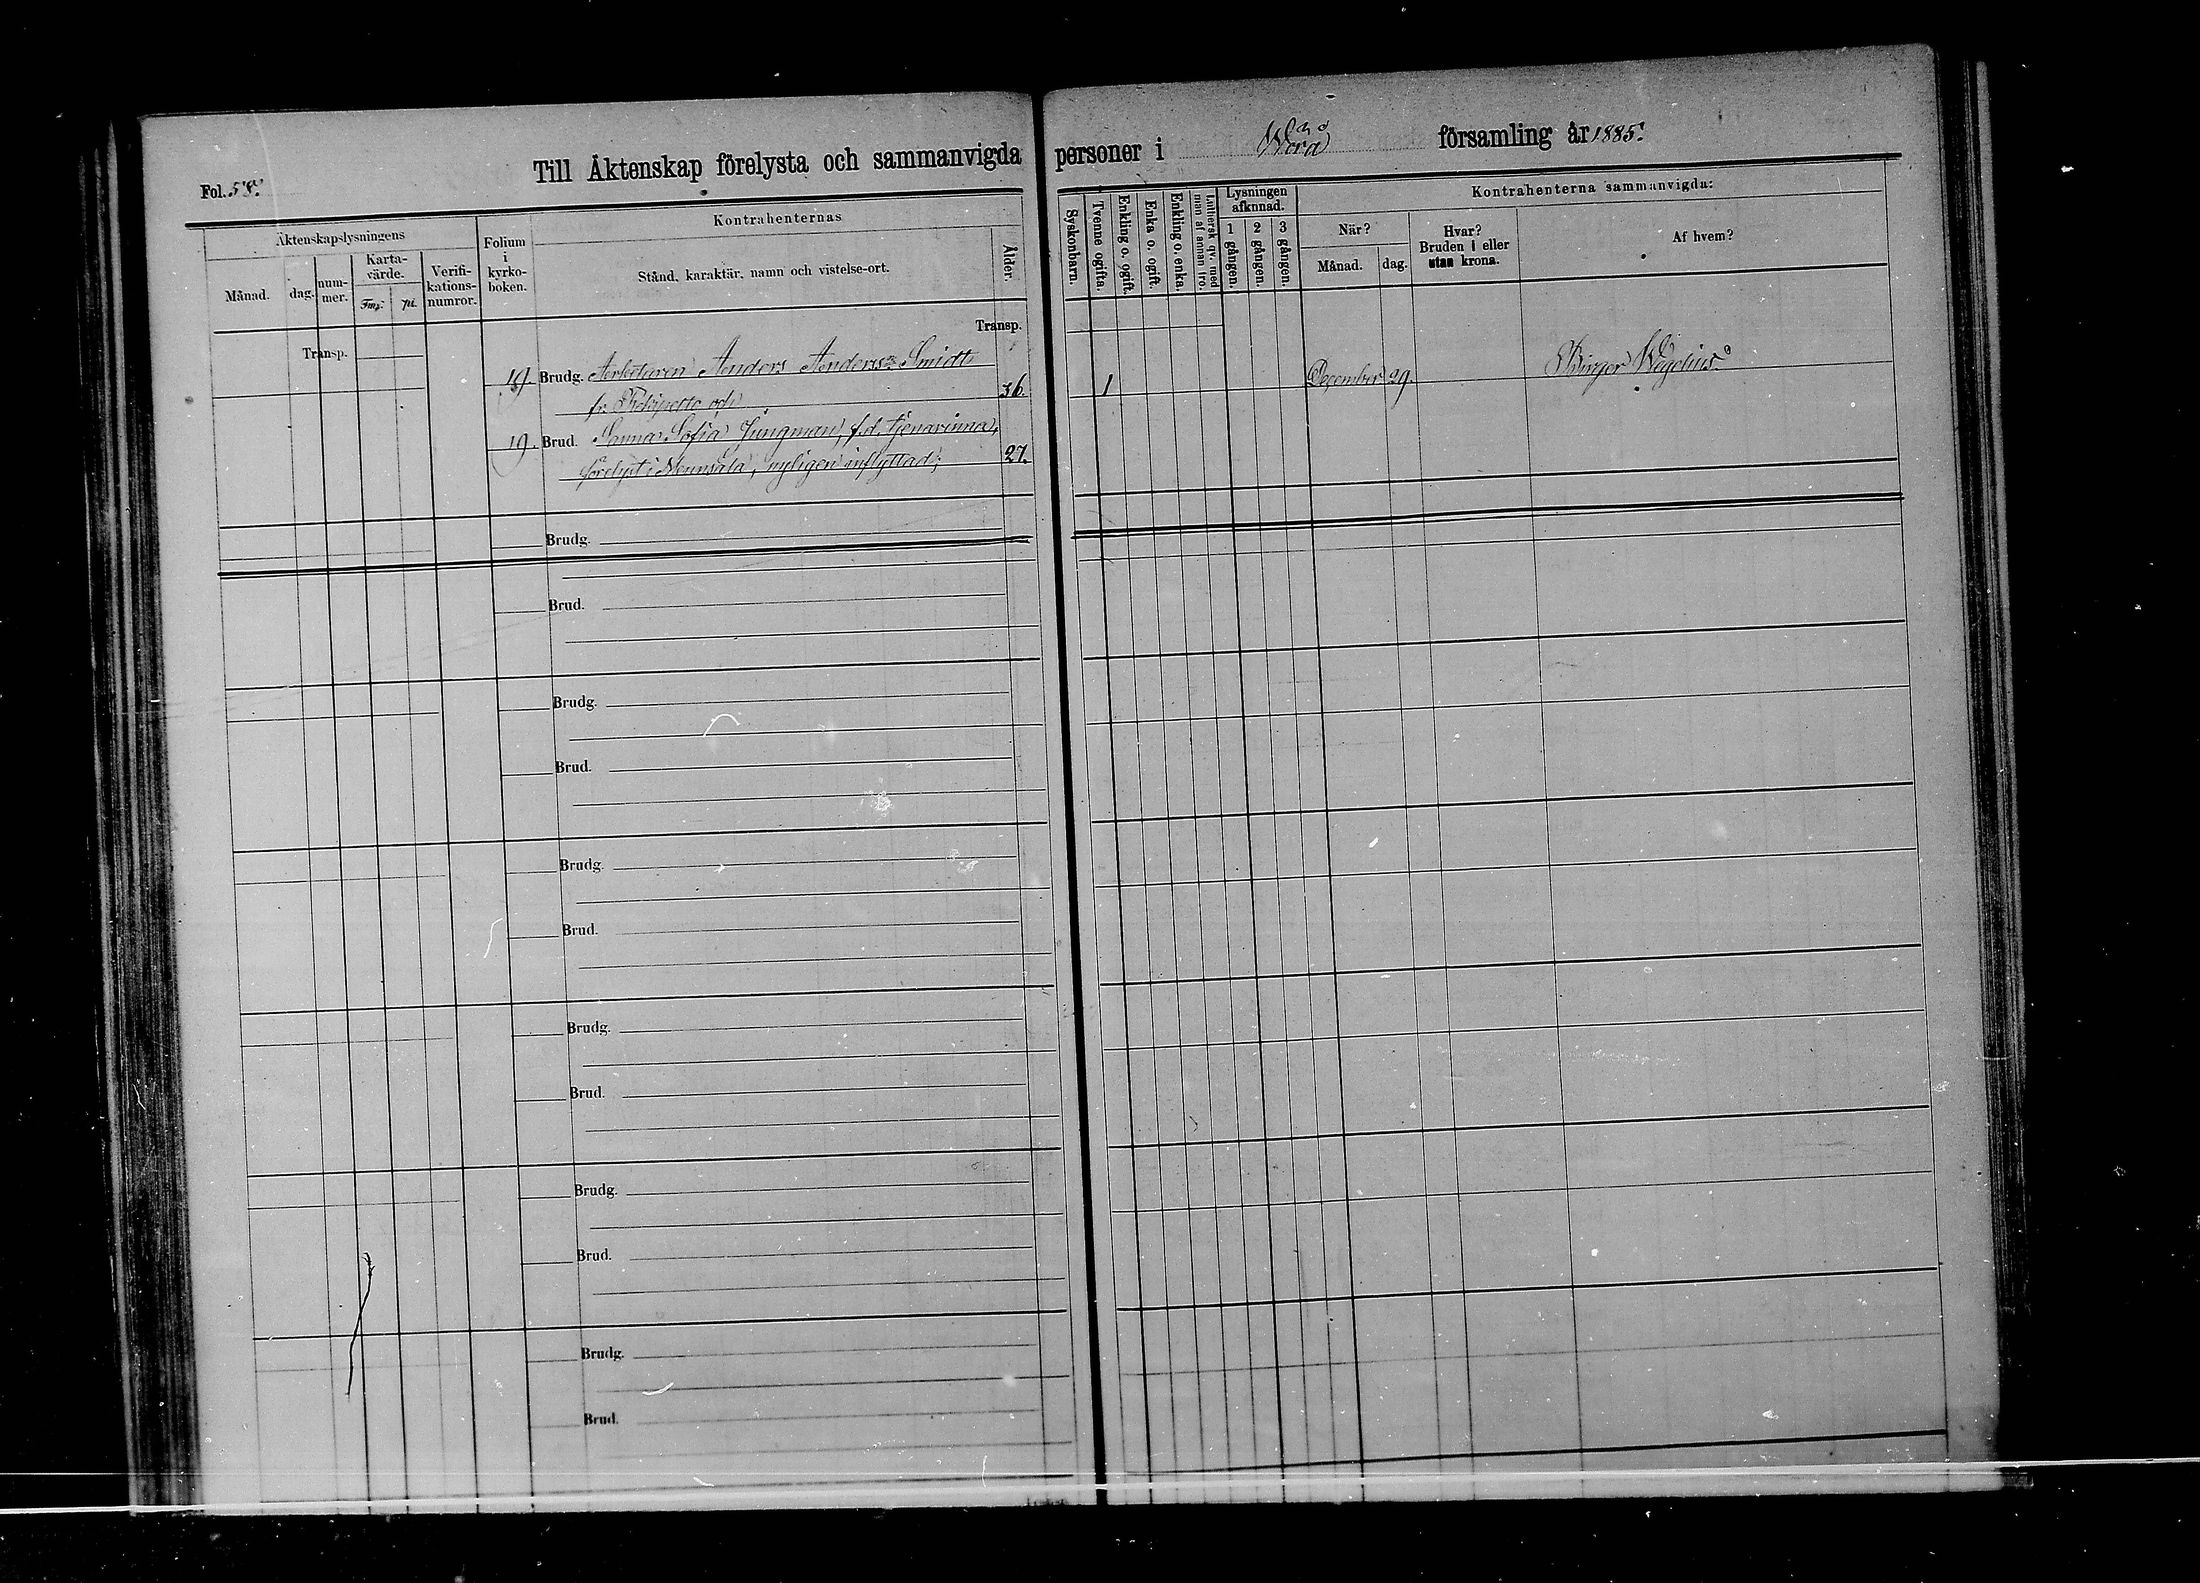 Fol. 58.
Till Äktenskap förelysta och sammanvigda personer i Wörå församling år 1885.
Äktenskapslysningens
Månad. dag. nummer. Karta-värde. Fmg: pi. Verifi-kations-numror.
Folium i kyrko-boken.
Kontrahenternas
Stånd, karaktär, namn och vistelse-ort.
Ålder.
Syskonbarn.
Tvenne ogifta.
Enkling o. ogift.
Enka o. ogift.
Enkling o. enka.
Luthersk qv. med man af annan tro.
Lysningen afknnad.
1 gången. 2 gången. 3 gången.
Kontrahenterna sammanvigda:
När?
Månad. dag.
Hvar? Bruden i eller utan krona.
Af hvem?
Transp. Transp.
19. Brudg. Arbetaren Anders Anderss:n Smidt
fr. och 36. 1 December 29. Birger Wegelius.
19. Brud. Sanna Sofia Jungman, f.d. tjenarinna,
förelyst i Munsala, nyligen inflyttad; 27.
Brudg.
Brud.
Brudg.
Brud.
Brudg.
Brud.
Brudg.
Brud.
Brudg.
Brud.
Brudg.
Brud.